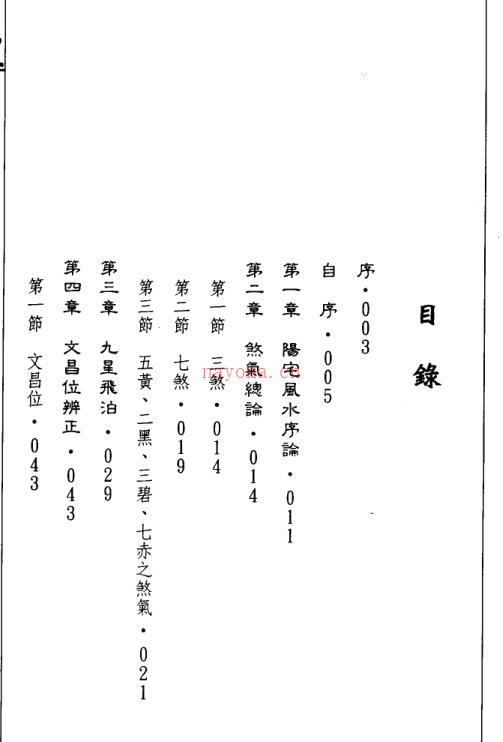 目錄
序・003
自序・005
第一章 陽宅風水序論・011
第二章 煞氣總論・014
第一節 三煞・014
第二節 七煞・019
第三節 五黃、二黑、三碧、七赤之煞氣・021
第三章 九星飛泊・029
第四章 文昌位辨正・043
第一節 文昌位・043